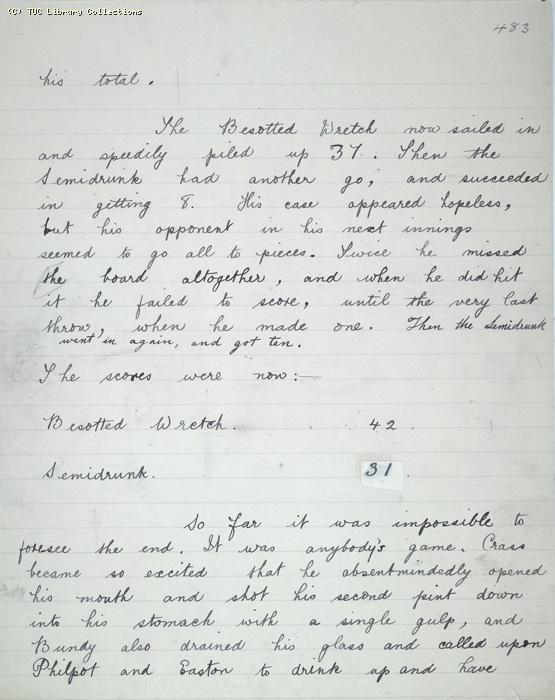 (C) TUC Library Collections
483
his total.
The Besotted Wretch now sailed in
and speedily piled up 37. Then the
Semidrunk had another go, and succeeded
in getting 8. His case appeared hopeless,
but his opponent in his next innings
seemed to go all to pieces. Twice he missed
the board altogether, and when he did hit
it he failed to score, until the very last
throw, when he made one. Then the Semidrunk
went in again, and got ten.
The scores were now:—
Besotted Wretch. 42.
Semidrunk. 31.
So far it was impossible to
foresee the end. It was anybody's game. Crass
became so excited that he absentmindedly opened
his mouth and shot his second pint down
into his stomach with a single gulp, and
Bundy also drained his glass and called upon
Philpot and Easton to drink up and have